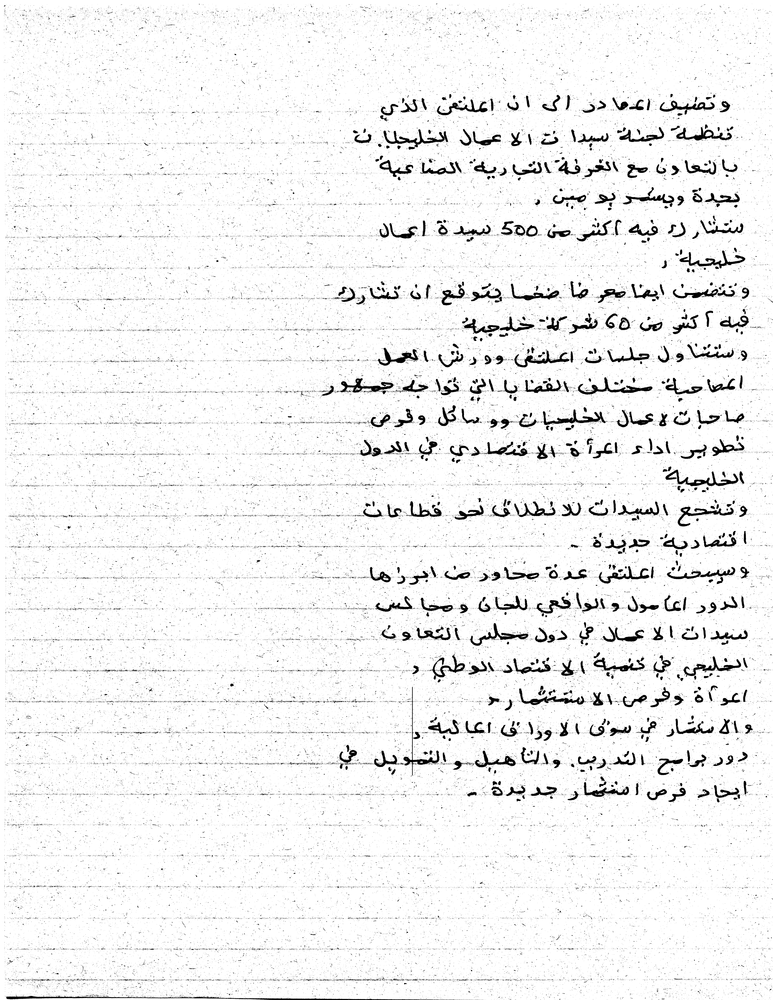 وتضيف المصادر الى ان الملتقى الذي
تنظمه لجنة سيدات الاعمال الخليجيات
بالتعاون مع الغرفة التجارية الصناعية
بجدة ويستمر يومين ,
ستشارك فيه اكثر من 500 سيدة اعمال
خليجية ,
وتتضمن ايضا معرضا ضخما يتوقع ان تشارك
فيه اكثر من 60 شركة خليجية
وستتناول جلسات الملتقى وورش العمل
المصاحبة مختلف القضايا التي تواجه جمهور
صاحبات لاعمال الخليجيات ووسائل وفرص
تطوير اداء المرأة الاقتصادي في الدول
الخليجية
وتشجع السيدات للانطلاق نحو قطاعات
اقتصادية جديدة -
وسيبحث الملتقى عدة محاور من ابرزها
الدور المامول والواقعي للجان ومجالس
سيدات الاعمال في دول مجلس التعاون
الخليجي في تنمية الاقتصاد الوطني ,
المرأة وفرص الاستثمار ,
والاستثمار في سوق الاوراق المالية ,
دور برامج التدريب والتأهيل والتمويل في
ايجاد فرص استثمار جديدة -